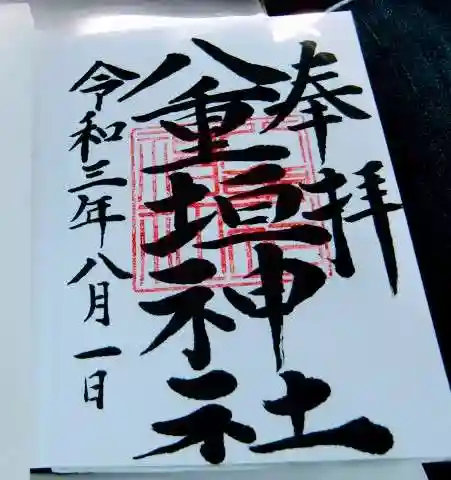 奉拝
八重垣神社
令和三年八月一日